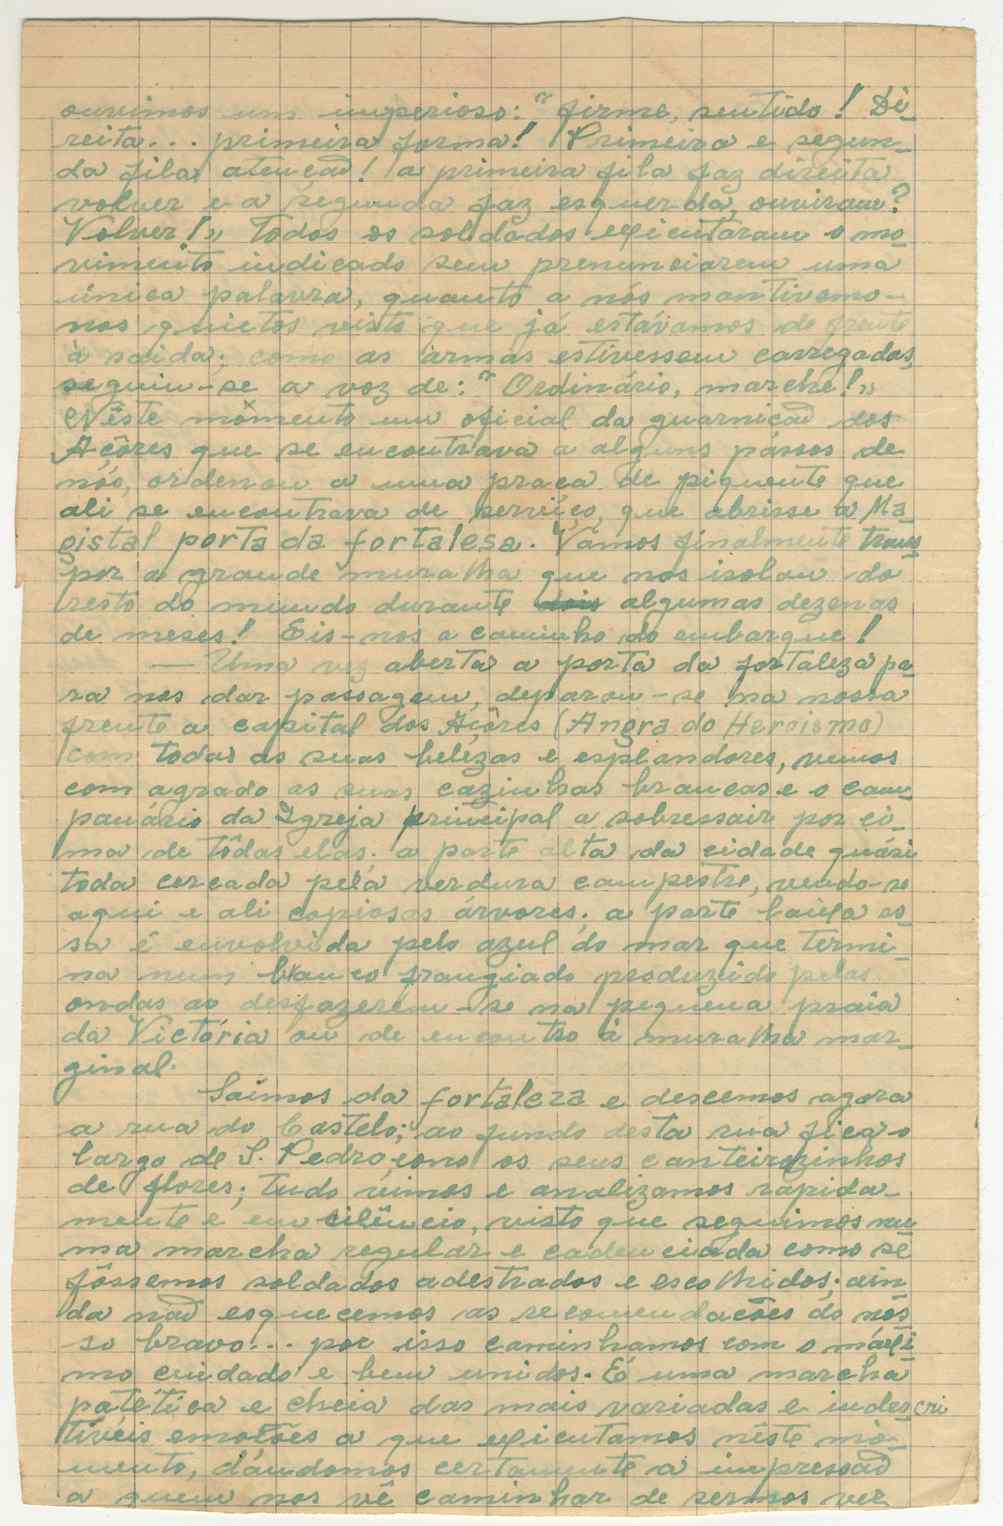 ouvimos um imperioso: "firme, sentido! Di-
reita... primeira forma! Primeira e segun-
da fila, atenção! a primeira fila faz direita
volver e a segunda faz esquerda, ouviram?
Volver!" Todos os soldados exicutaram o mo-
vimento indicado sem prenunciarem uma
única palavra, quanto a nós mantivemo-
nos quietos visto que já estávamos de frente
à saida; como as armas estivessem carregadas,
seguiu-se a voz de: "Ordinário, marche!"
Nêste mômento um oficial da guarnição dos
Açôres que se encontrava a alguns pássos de
nós, ordenou a uma praça de piquente que
ali se encontrava de serviço, que abrisse a Ma-
gistal porta da fortalesa. Vamos finalmente trans
por a grande muralha que nos isolou do
resto do mundo durante dois algumas dezenas
de meses! Eis-nos a caminho do embarque!
— Uma vez aberta a porta da fortaleza pa-
ra nos dar passagem, deparou-se na nossa
frente a capital dos Açôres (Angra do Heroismo)
com todas as suas belezas e esplandores, vimos
com agrado as suas cazinhas brancas e o cam-
panário da Igreja principal a sobressair por ci-
ma de tôdas elas. a parte alta da cidade quási
toda cercada pela verdura campestre, vendo-se
aqui e ali copiosas árvores. a parte baixa es-
sa é envolvida pelo azul do mar que termi-
na num branco frangiado produzido pelas
ondas ao desfazerem-se na pequena praia
da Victória ou de encontro à muralha mar-
ginal.
Saímos da fortaleza e descemos agora
a rua do Castelo; ao fundo desta rua fica o
largo de S. Pedro, como os seus canteirozinhos
de flores; tudo vimos e analizamos rapida-
mente e em cilêncio, visto que seguimos nu
ma marcha regular e cadenciada como se
fôssemos soldados adestrados e escolhidos; ain
da não esquecemos as recomendacões do nós-
so bravo... por isso caminhamos com o máxi-
mo cuidado e bem unidos. É uma marcha
patética e cheia das mais variadas e indescri
tíveis emoções a que exicutamos nêste mô-
mento, dândomos certamente a impressão
a quem nos vê caminhar de sermos ver